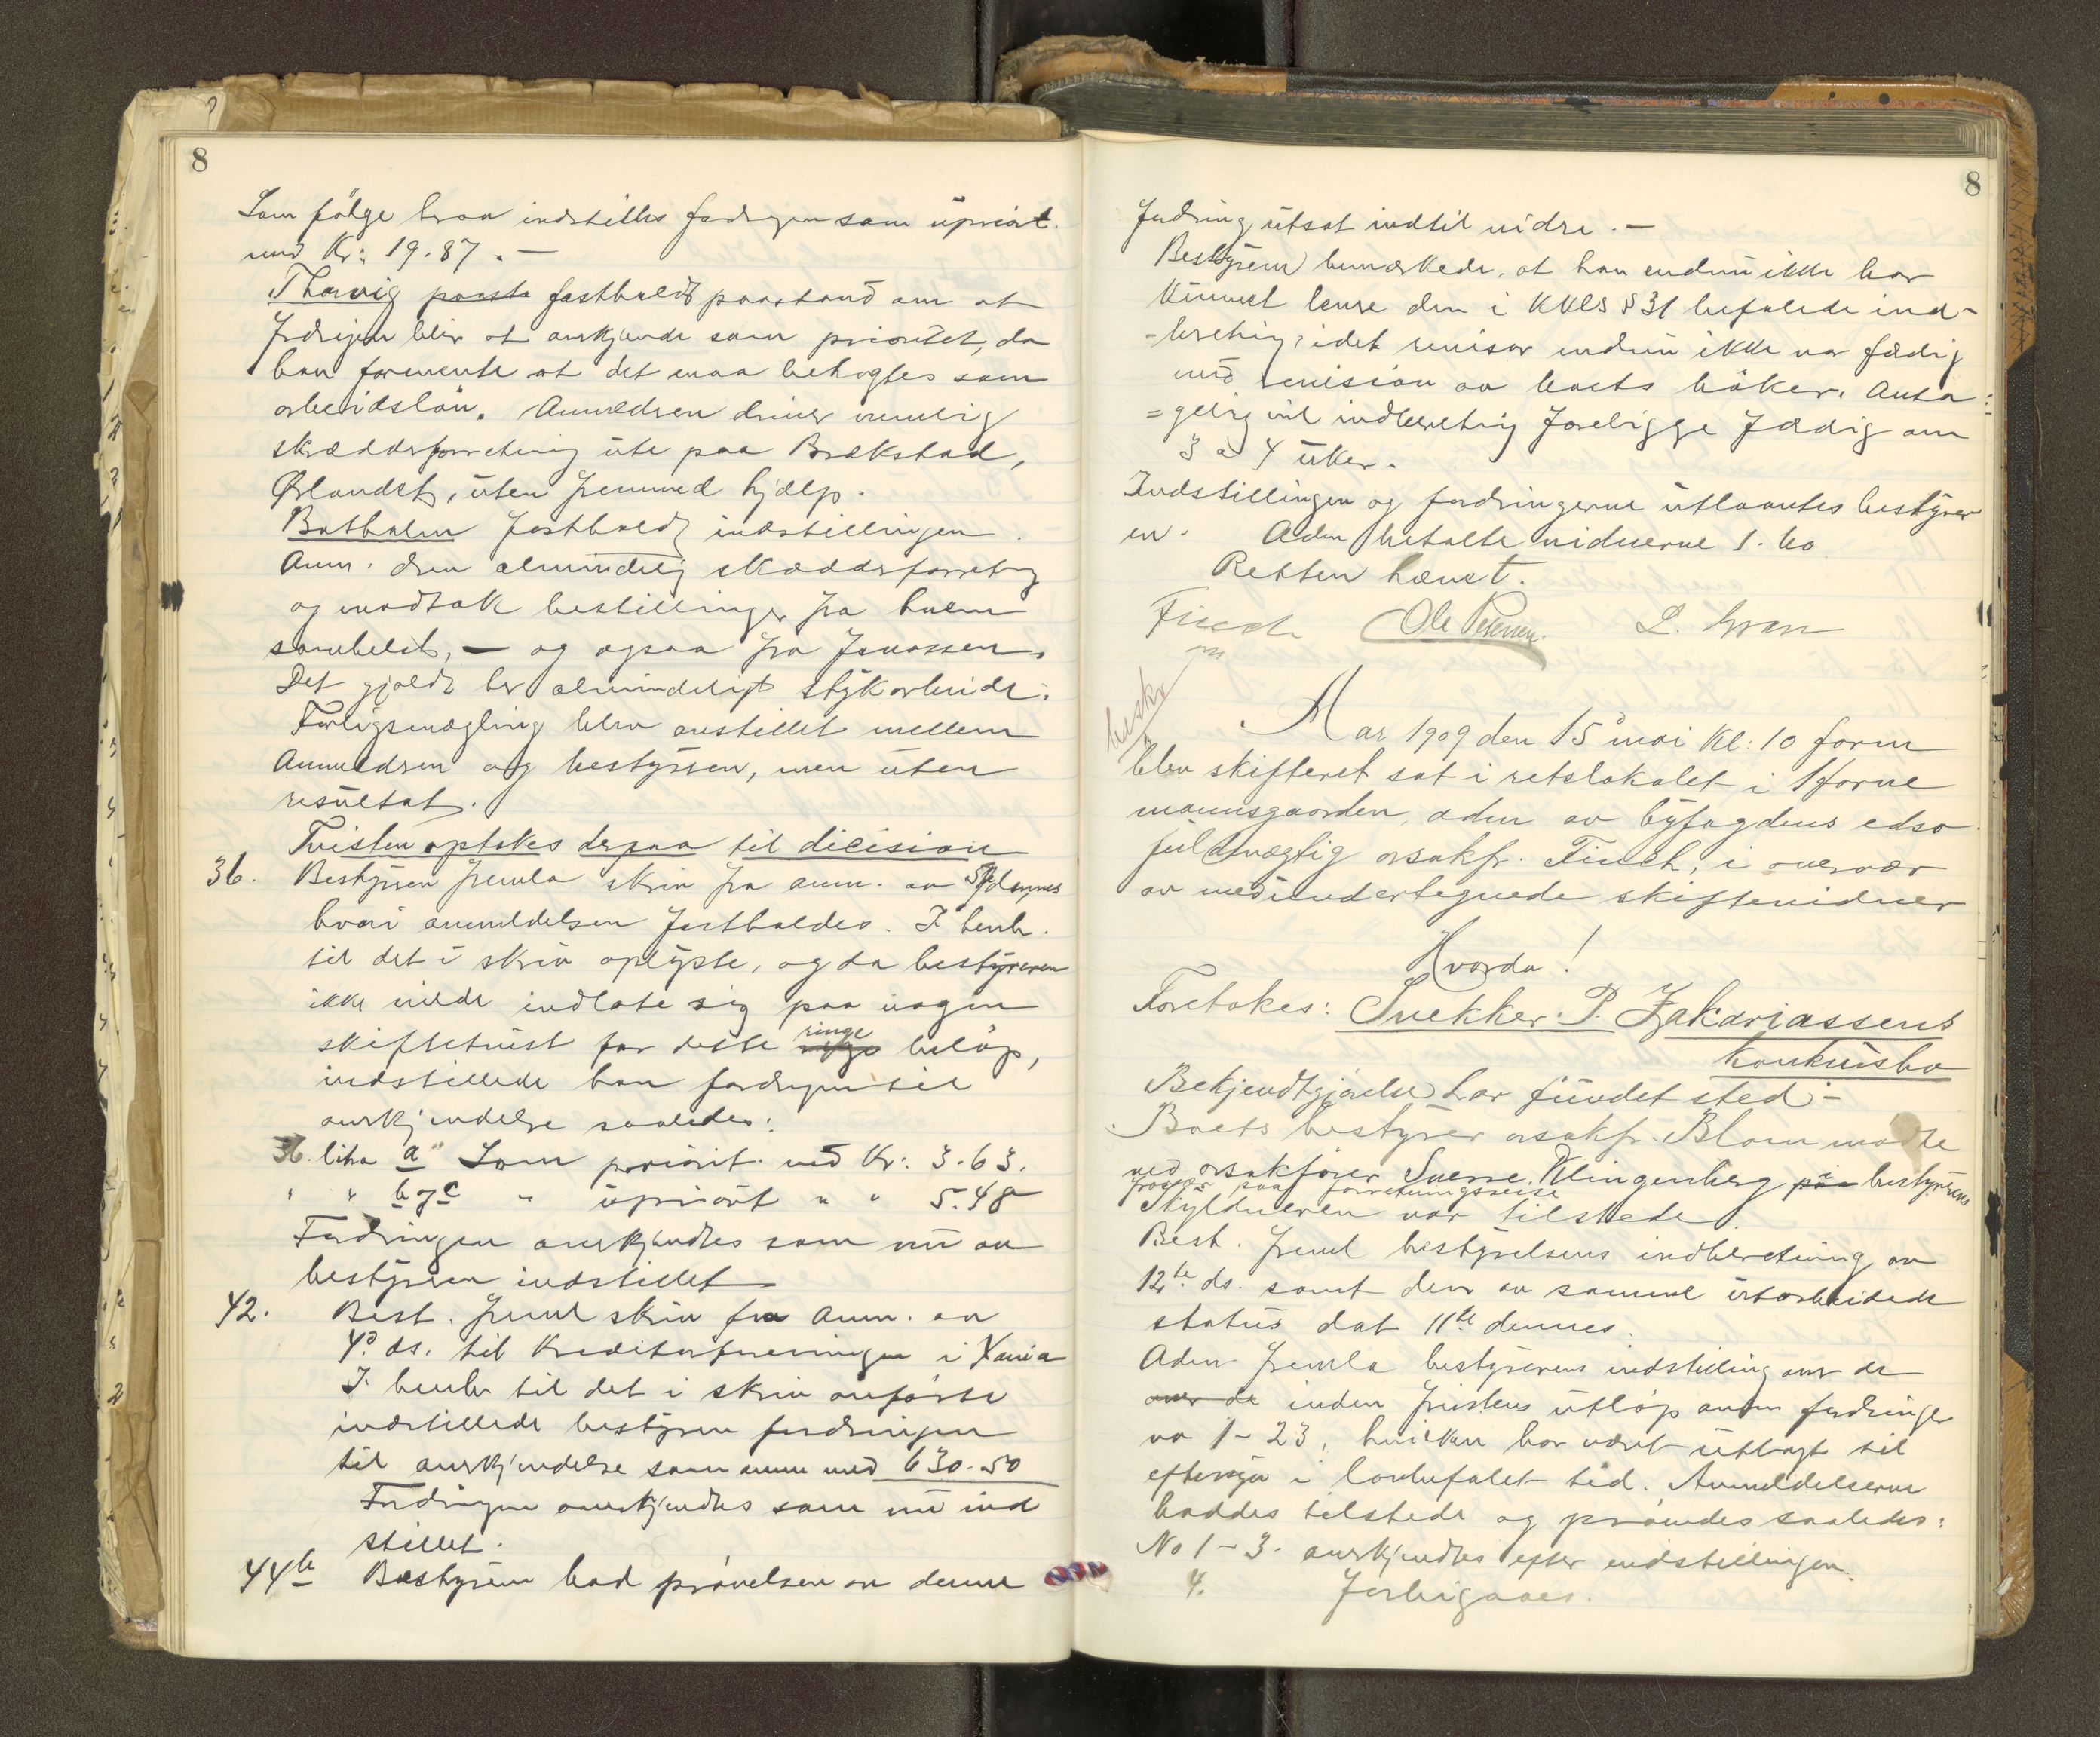 8
Som følge herav indstilles fordringen som uprior.
med Kr: 19.87. —
Thorvig paast fastholdt paastand om at
fordringen blir at anerkjende som prioritet, da
han formente at det maa betragtes som
arbeidsløn. Anmelderen driver nemlig
skrædderforretning ute paa Brekstad,
Ørlandet, uten fremmed hjælp.
Batholm fastholdt indstillingen.
Anm. drev almindelig skrædderforretng
og modtok bestillinger fra hvem
somhelst, — og ogsaa fra Jonassen.
Det gjaldt her almindeligt stykarbeide.
Forligsmægling blev anstillet mellem
Anmelderen og bestyreren, men uten
resultat.
Tvisten optokes derpaa til dicision
36. Bestyreren fremla skriv fra anm. av 5te dennes
hvori anmeldelsen fastholdes. I henh.
til det i skriv oplyste, og da bestyreren
ikke vilde indlate sig paa nogen
skiftetvist for dette ringe beløp,
indstillede han fordringen til
anerkjendelse saaledes:
36. litra a Som priorit. med Kr: 3.63.
" " b og c " upriorit " " 5.48
Fordringen anerkjendtes som nu av
bestyreren indstillet
42. Best. freml skriv fra anm. av
4de ds. til Kreditorforeningen i Xania
I henh til det i skriv anførte
indstillede bestyreren fordringen
til anerkjendelse som anm med 630.50
Fordringen anerkjendtes som nu ind
stillet.
44 b Bestyreren bad prøvelsen av denne
8
fordring utsat indtil vidre. —
Bestyreren bemærkede, at han endnu ikke har
kunnet levere den i KKLs § 31 befalede ind-
-beretng, idet revisor endnu ikke var færdig
med revision av boets bøker. Anta-
=gelig vil indberetng foreligge færdig om
3 a 4 uker.
Indstillingen og fordringerne utlaantes bestyrer
en. Adm betalte vidnerne 1.60
Retten hævet.
Finch Ole Petersen. L. Gram
beskr
Aar 1909 den 15de mai Kl: 10 form
blev skifteret sat i retslokalet i Horne
mannsgaarden, adm av byfogdens edsv
fuldmægtig orsakfr. Finch, i overvær
av medundertegnede skiftevidner
Hvorda!
Foretokes: Snekker P. Zakariassens
konkursbo
Bekjendtgjørelse har fundet sted —
Boets bestyrer orsakfr. Blom mødte
ved orsakfører Sverre Klingenberg paa i bestyrerens
fravær paa forretningsreise
Skyldneren var tilstede.
Best. freml bestyrelsens indberetning av
12te ds. samt den av samme utarbeidede
status dat 11te dennes.
Adm fremla bestyrerens indstilling over de
over de inden fristens utløp anm fordringer
no 1-23, hvilken har været utlagt til
eftersyn i lovbefalet tid. Anmeldelserne
haddes tilstede og prøvedes saaledes:
No 1-3. anerkjendtes efter indstillingen.
4. Forbigaaes.